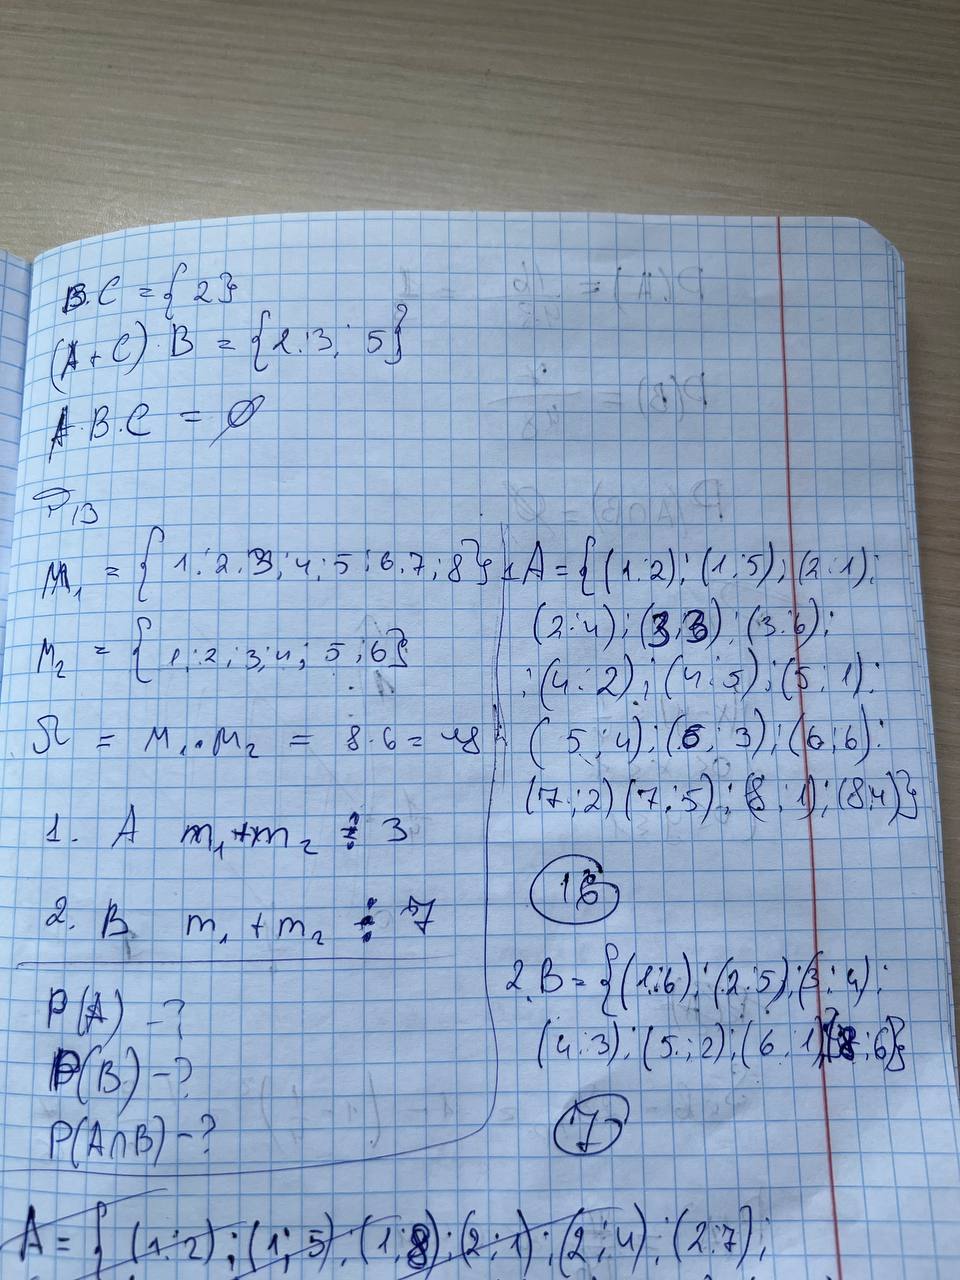 B·C = {2}
(A+C)·B = {2;3; 5}
A·B·C = ∅
M₁ = {1;2;3;4;5;6;7;8}
M₂ = {1;2;3;4;5;6}
Ω = M₁·M₂ = 8·6 = 48
1. A m₁+m₂ ⋮ 3
2. B m₁+m₂ ⋮ 7
P(A) -?
P(B) -?
P(A∩B) -?
1 A = {(1;2);(1;5);(2;1);
(2;4);(3;3);(3;6);
;(4;2);(4;5);(5;1);
(5;4);(6;3);(6;6);
(7;2)(7;5);(8;1);(8;4)}
16
2. B = {(1;6);(2;5);(3;4);
(4;3);(5;2);(6;1)(8;6}
7
A = { (1;2);(1;5);(1;8);(2;1);(2;4);(2;7);